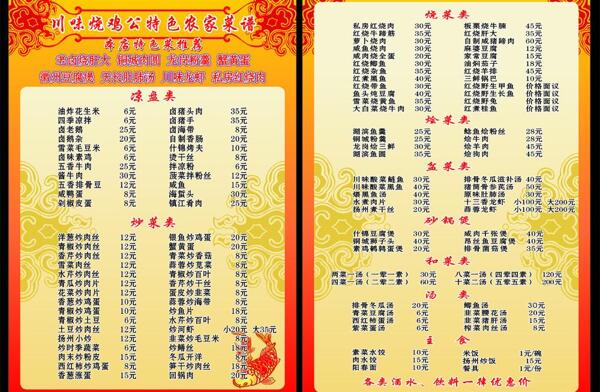 川味烧鸡公特色农家菜谱
本店特色菜推荐
凉盘类
油炸花生米 6元 卤猪头肉 35元
四季凉拌 6元 卤猪手 35元
卤老鹅 25元 卤海带 8元
卤鹅杂 20元 自制香肠 20元
雪菜毛豆米 6元 什锦烤夫 10元
卤味素鸡 6元 烫干丝 8元
五香牛肉 25元 拌凉粉 6元
酱牛肉 30元 菠菜拌粉丝 12元
五香排骨豆 12元 咸鱼 15元
咸鸭蛋 8元 海蜇头 30元
剁椒皮蛋 10元 镇江肴肉 25元
炒菜类
洋葱炒肉丝 12元 银鱼炒鸡蛋 20元
青椒炒肉丝 12元 蟹黄蛋 20元
香芹炒肉丝 12元 青菜炒香菇 8元
青菜肉丝 12元 蒜蓉炒苋菜 8元
水芹炒肉丝 12元 青椒炒百叶 8元
青瓜炒肉片 12元 青椒炒干子 8元
花菜炒肉片 12元 蛋皮炒韭菜 8元
香葱炒鸡蛋 10元 蒜蓉炒海带 8元
青椒炒鸡蛋 10元 炒鱼片 18元
青瓜炒鸡蛋 10元 水芹炒百叶 8元
土豆炒肉丝 12元 炒河虾 小20元 大35元
扬州小炒 12元 炒土豆丝 8元
炒时季蔬菜 6元 炒鳝丝 18元
肉末炒粉皮 15元 冬瓜开洋 8元
肉末粉丝 15元 笋干炒肉丝 15元
香葱涨蛋 20元 回锅肉 20元
烧菜类
私房红烧肉 30元 板栗烧牛腩 45元
红烧牛蹄筋 35元 红烧肝大 35元
萝卜烧肉 30元 自制咸猪蹄 60元
咸鱼烧肉 30元 麻婆豆腐 12元
咸肉烧全蛋 20元 家常豆腐 12元
红烧鲫鱼 20元 油焖茄子 18元
红烧杂鱼 25元 红烧羊排 45元
红烧素鸡 20元 三鲜锅巴 10元
红烧带鱼 30元 红烧野生甲鱼 价格面议
鱼头炖豆腐 40元 红烧野生长鱼 价格面议
雪菜烧黄鱼 35元 红烧野兔 价格面议
大白菜烧牛肉 30元 红煮野鸡 价格面议
烩菜类
湖滨鱼羹 25元 鲶鱼烩粉丝 28元
铜城粉羹 25元 烩羊肉 30元
龙岗烩三鲜 25元 烩牛肉 35元
湖滨鱼圆 35元 烩肉圆 35元
盆菜类
川味酸菜鲢鱼 30元 排骨冬瓜滋补汤 40元
川味酸菜黑鱼 30元 猪筒骨参芪汤 50元
爆黑鱼汤 30元 原味肚肺汤 30元
水煮肉片 30元 十三香龙虾 小100元 大200元
扬州煮干丝 20元 蒜蓉龙虾 小100元 大200元
砂锅煲
什锦豆腐煲 30元 咸肉千张煲 30元
铜城狮子头 40元 昂丝鱼豆腐煲 30元
素鸡鹌鹑蛋煲 30元 排骨菌菇煲 35元
和菜类
两菜一汤(一荤一素) 30元 八菜一汤(四荤四素) 120元
四菜一汤(二荤二素) 60元 十菜二汤(五荤五素) 200元
汤类
排骨冬瓜汤 20元 鲫鱼汤 30元
青菜豆腐汤 5元 韭菜腰花汤 20元
西红柿蛋汤 5元 韭菜猪肝汤 20元
紫菜蛋汤 5元 榨菜肉丝汤 8元
主食
素菜水饺 10元 米饭 1元/份
肉水饺 15元 扬州炒饭 6元
阳春面 5元 锅巴 1元/碗
各类酒水、饮料一律优惠价